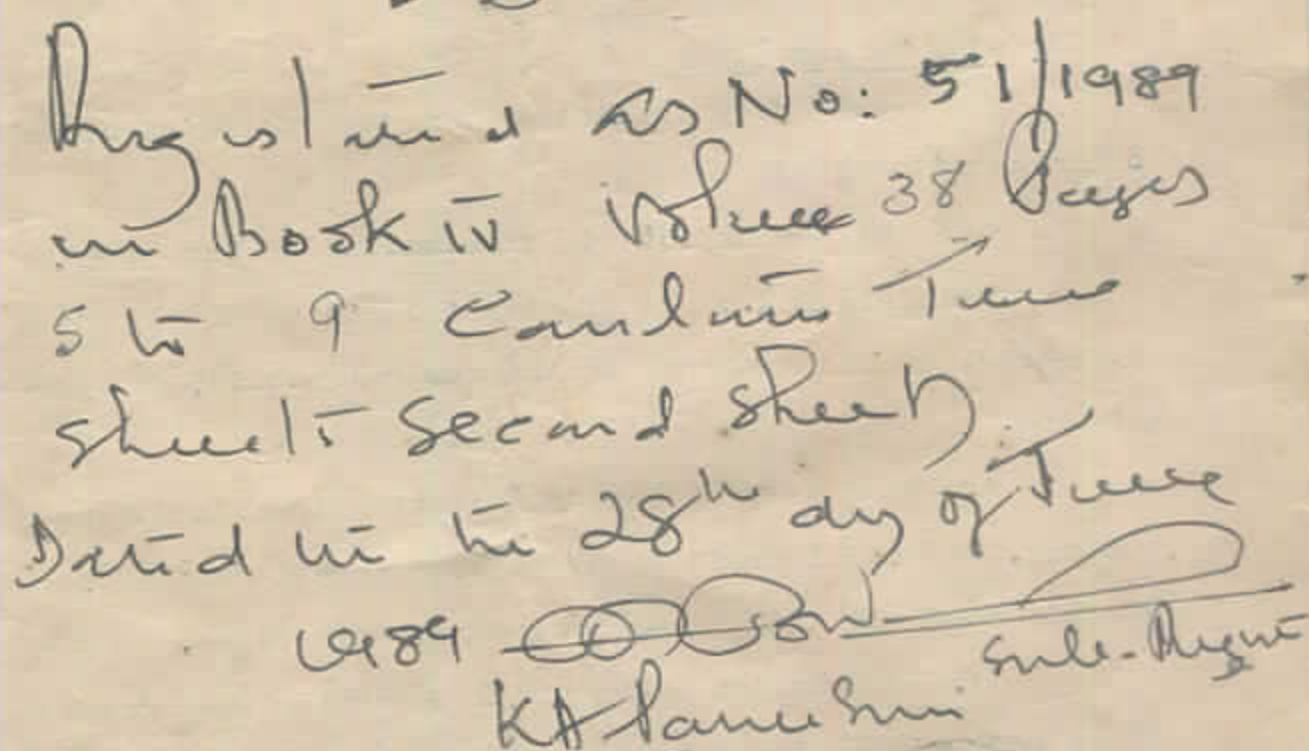 Registered as No: 51/1989
in Book IV Volume 38 Pages
5 to 9 Contains Two
sheets Second sheet
Dated in the 28th day of June
1989
Sub-Regist